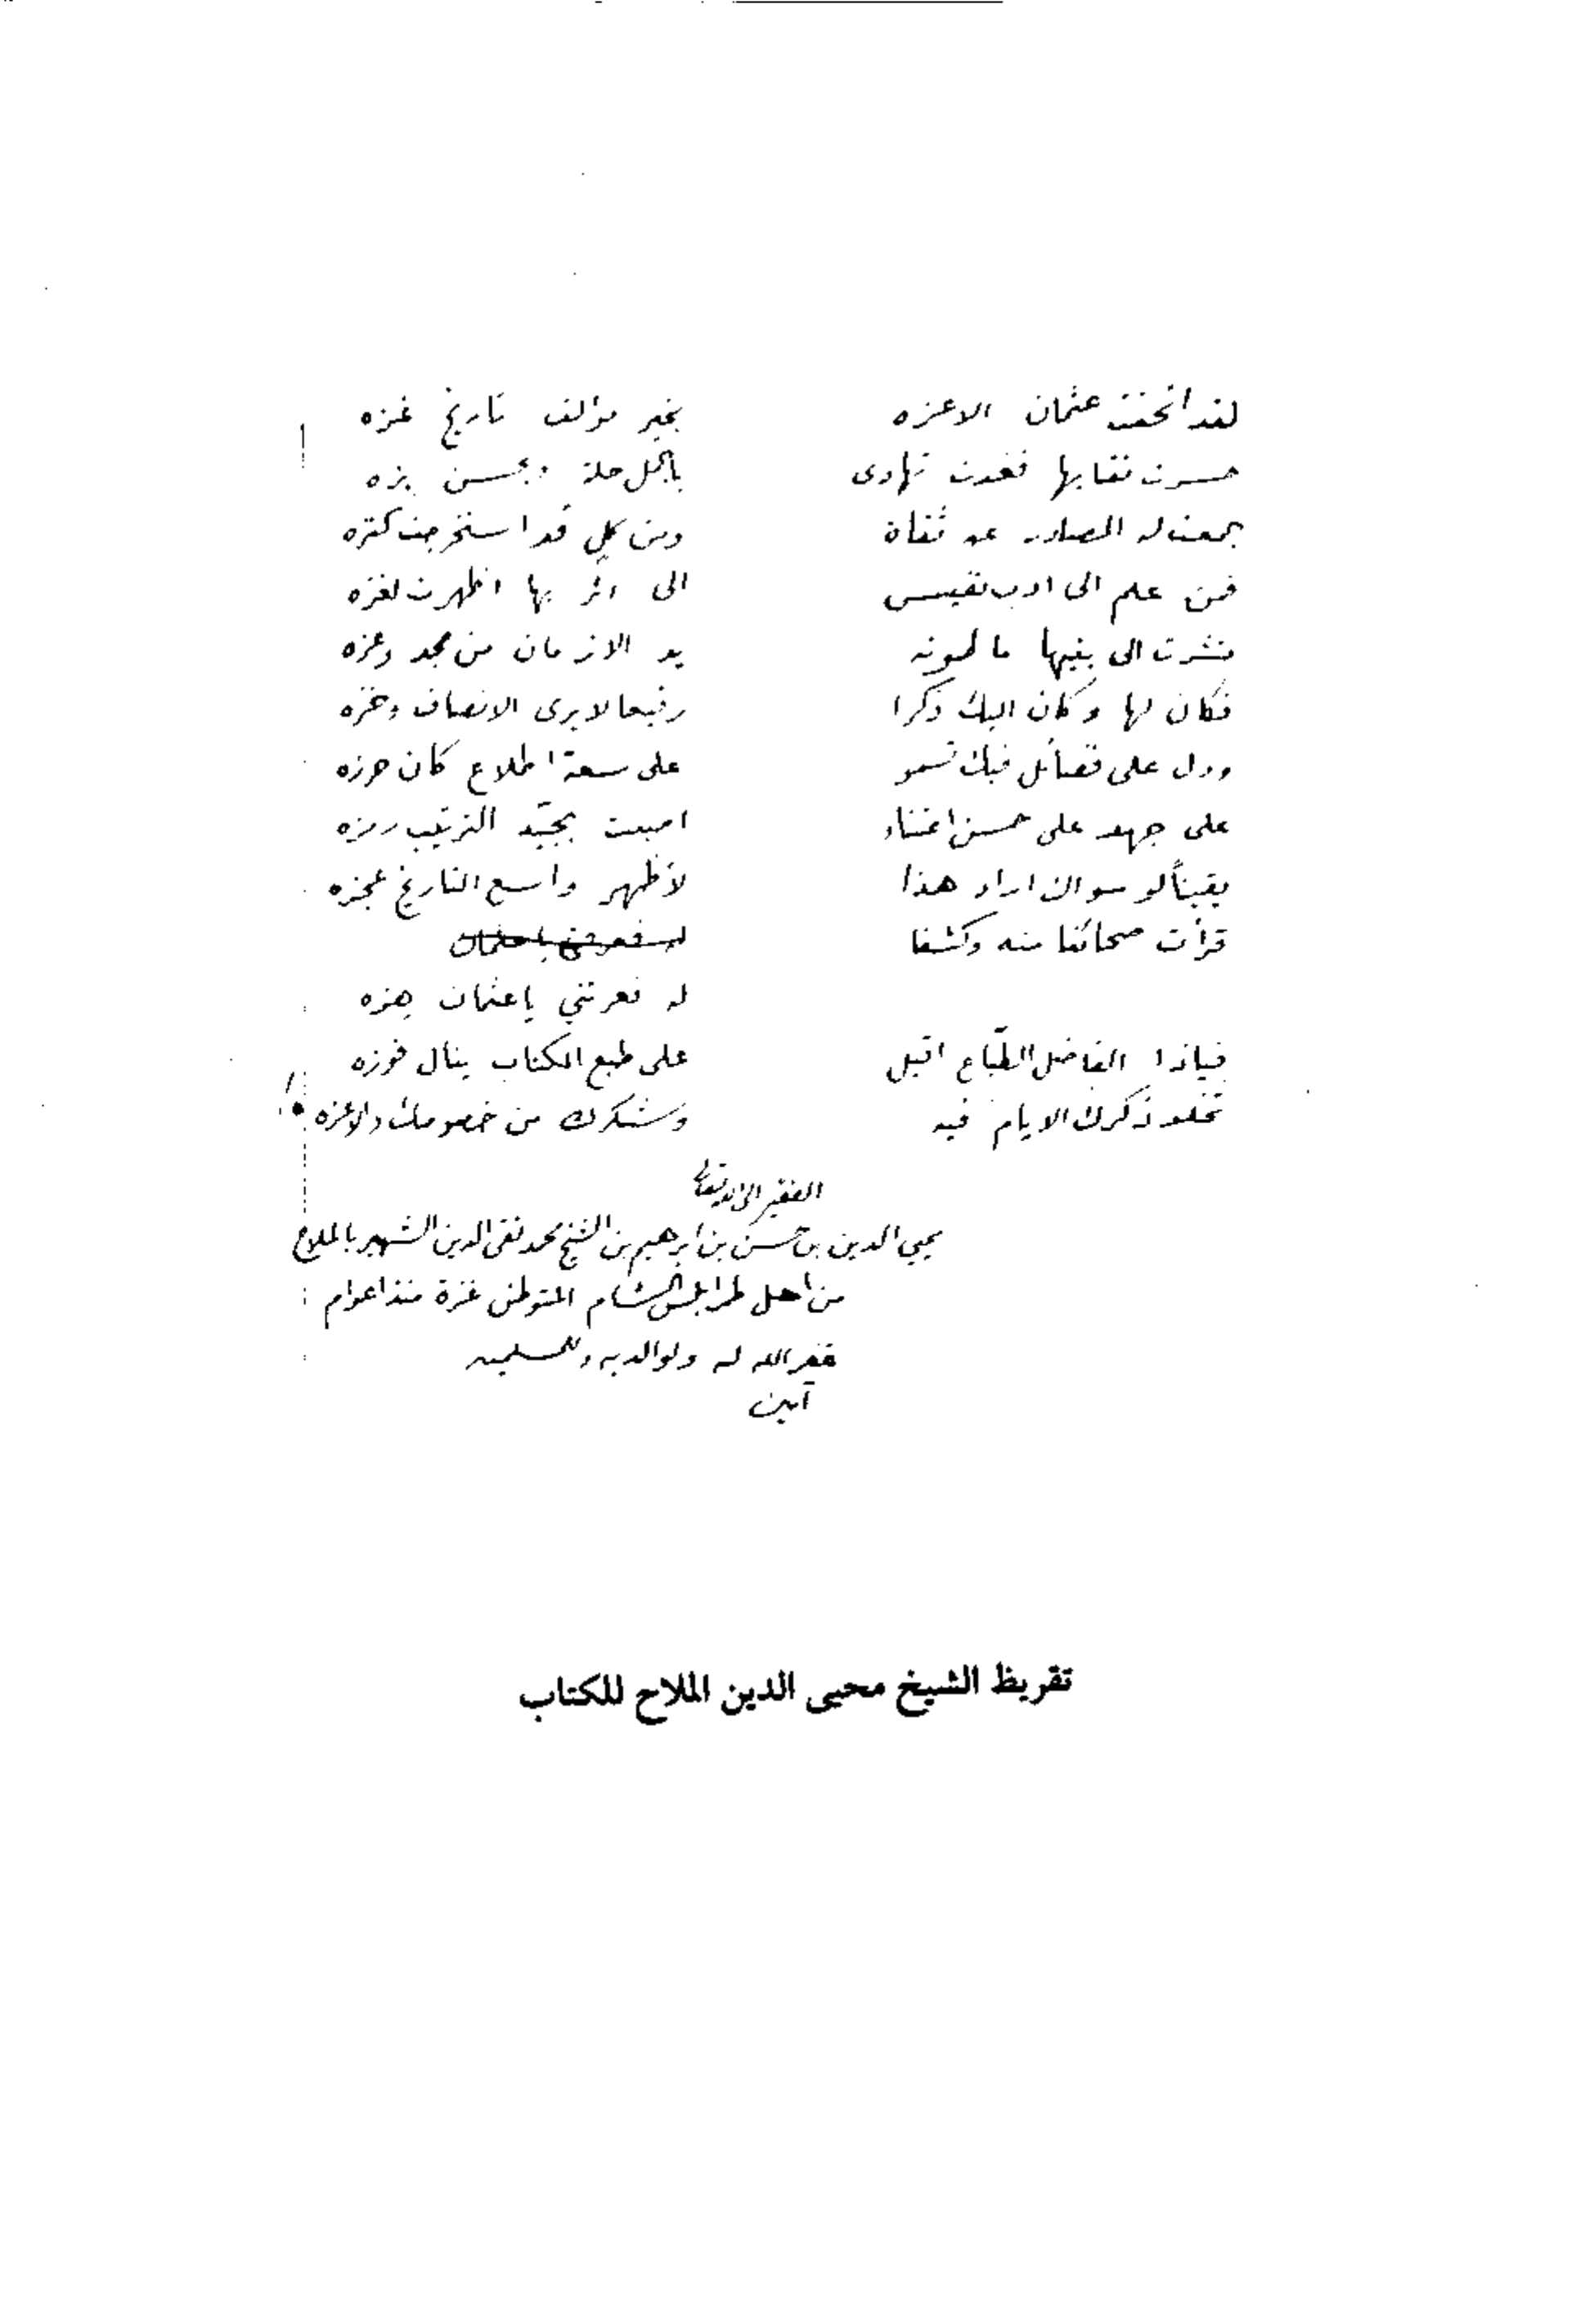 لقد اتحفت عثمان الاعزه بخير مؤلف تاريخ غزه
حسرت نقابها فغدت تهادى باجمل حلة وبحسن بزه
جمعت له المصادر عن ثقاة ومن كل قد استخرجت كنزه
فمن علم الى ادب نفيس الى اثر بها اظهرت لغزه
نشرت الى بنيها ما طوته يد الازمان من مجد وعزه
فكان لها وكان اليك ذكرا رفيعا لا يرى الانصاف وخزه
ودل على فضائل فيك تسمو على سعة اطلاع كان حرزه
على جهد على حسن اعتناء اصبت بجيّد الترتيب رمزه
يقيناً لو سواك اراد هذا لأظهر واسع التاريخ عجزه
قرأت صحائفا منه وكشفا
له فعرتني ياعثمان هزه
فياذا الفاضل الطبّاع اقبل على طبع الكتاب ينال فوزه
تخلد ذكرك الايام فيه وتشكرك من خصومك والاعزه
الفقير الى الله تعالى
محيي الدين بن حسن بن ابرهيم بن الشيخ محمد تقي الدين الشهير بالملاح
من اهل طرابلس الشام المتوطن غزة منذ اعوام
غفر الله له ولوالديه وللمسلمين
آمين
تقريظ الشيخ محيى الدين الملاح للكتاب